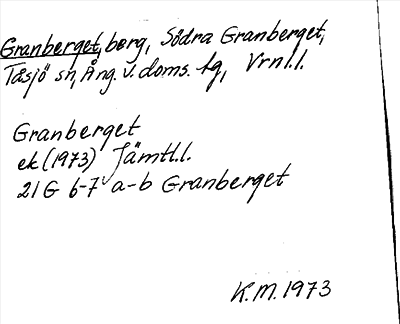 Granberget, berg, Södra Granberget,
Tåsjö sn, Ång. v. doms. tg, Vrnl.l.
Granberget
ek (1973) Jämtl.l.
21G 6-7 a-b Granberget
K.M. 1973